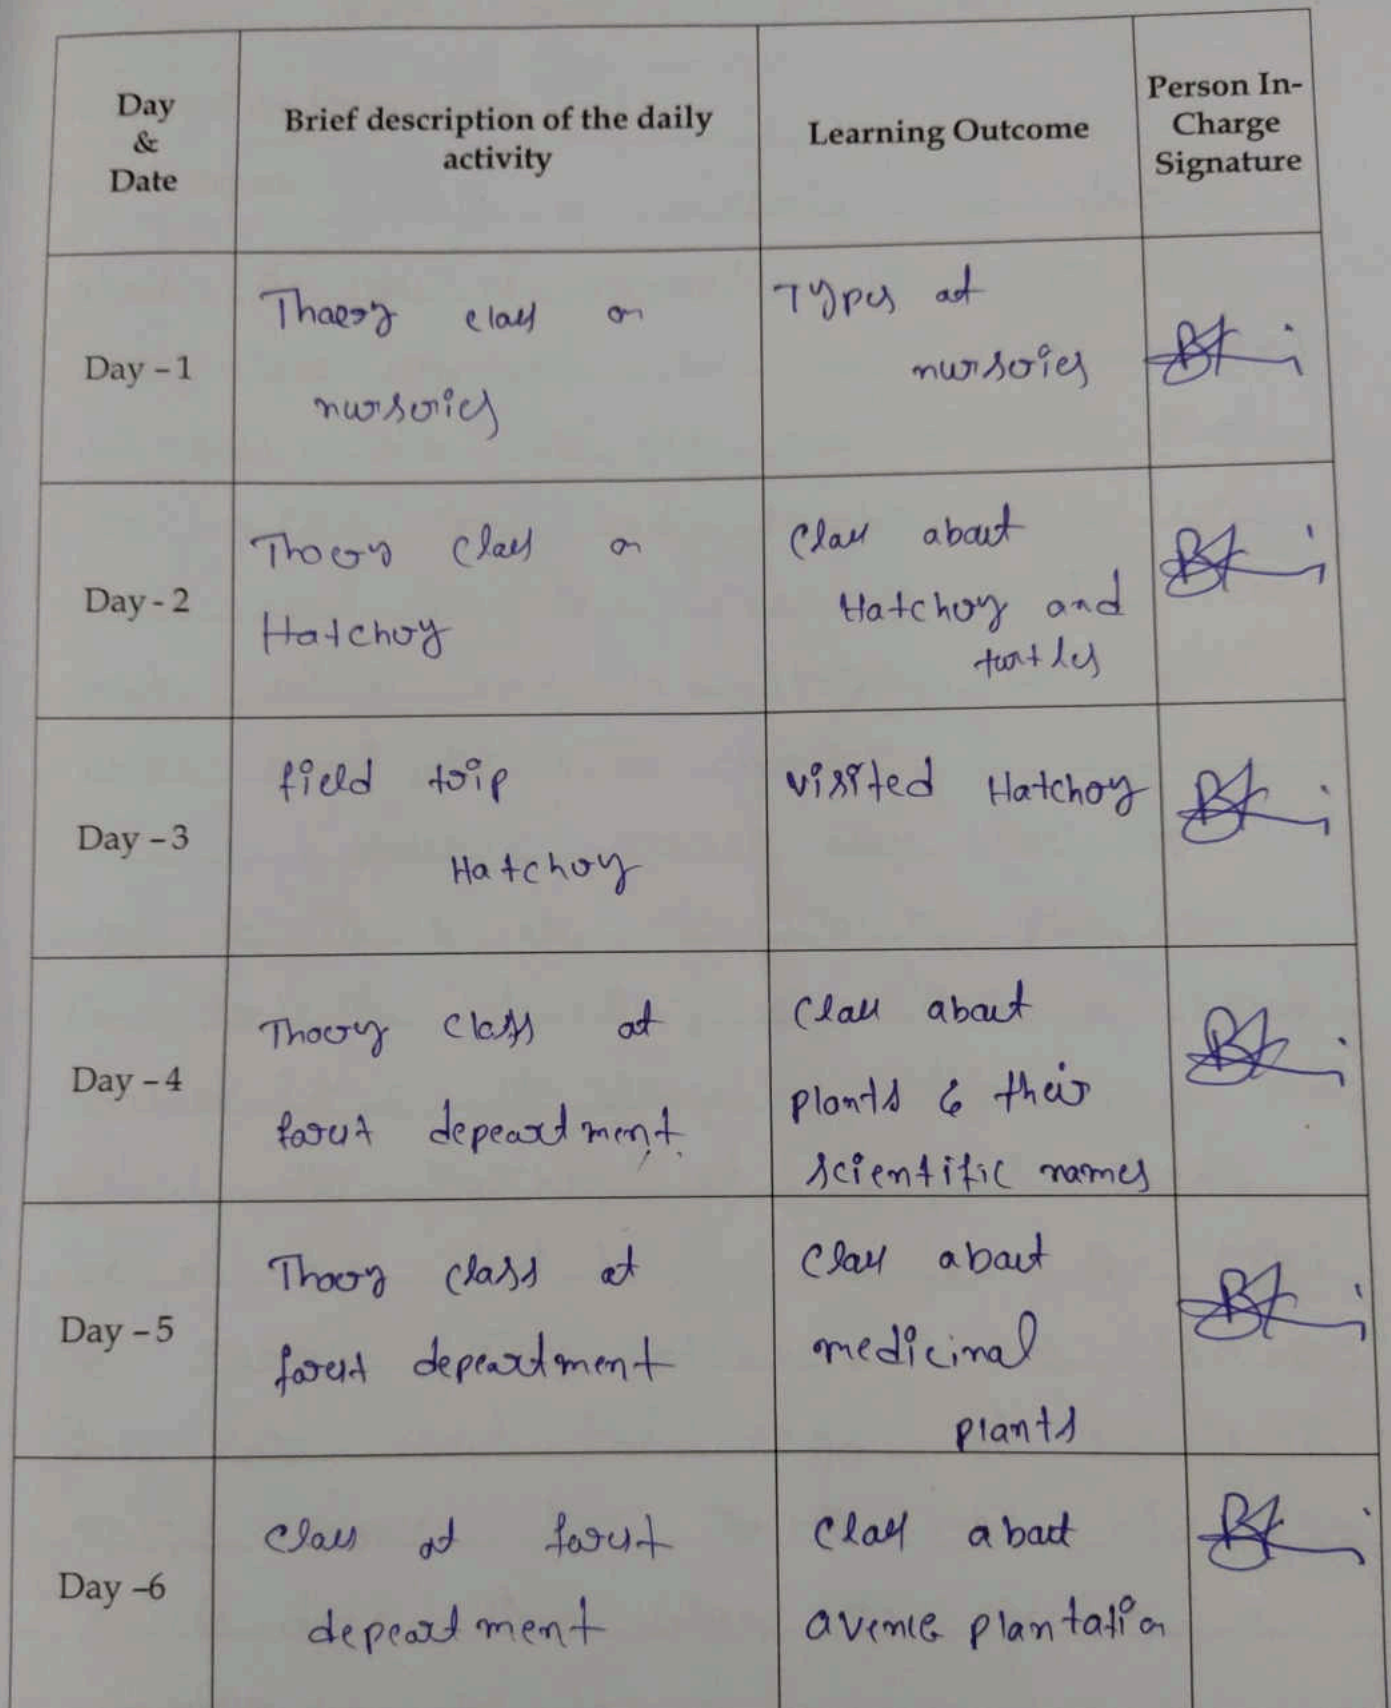 Day
&
Date
Brief description of the daily
activity
Learning Outcome
Person In-
Charge
Signature
Day - 1
Theory class on
nurseries
Types of
nurseries
Day - 2
Theory class on
Hatchery
Class about
Hatchery and
turtles
Day - 3
field trip
Hatchery
visited Hatchery
Day - 4
Theory class at
forest depeartment
Class about
plants & their
scientific names
Day - 5
Theory class at
forest depeartment
Class about
medicinal
plants
Day -6
Class at forest
depeartment
Class about
avenue plantation